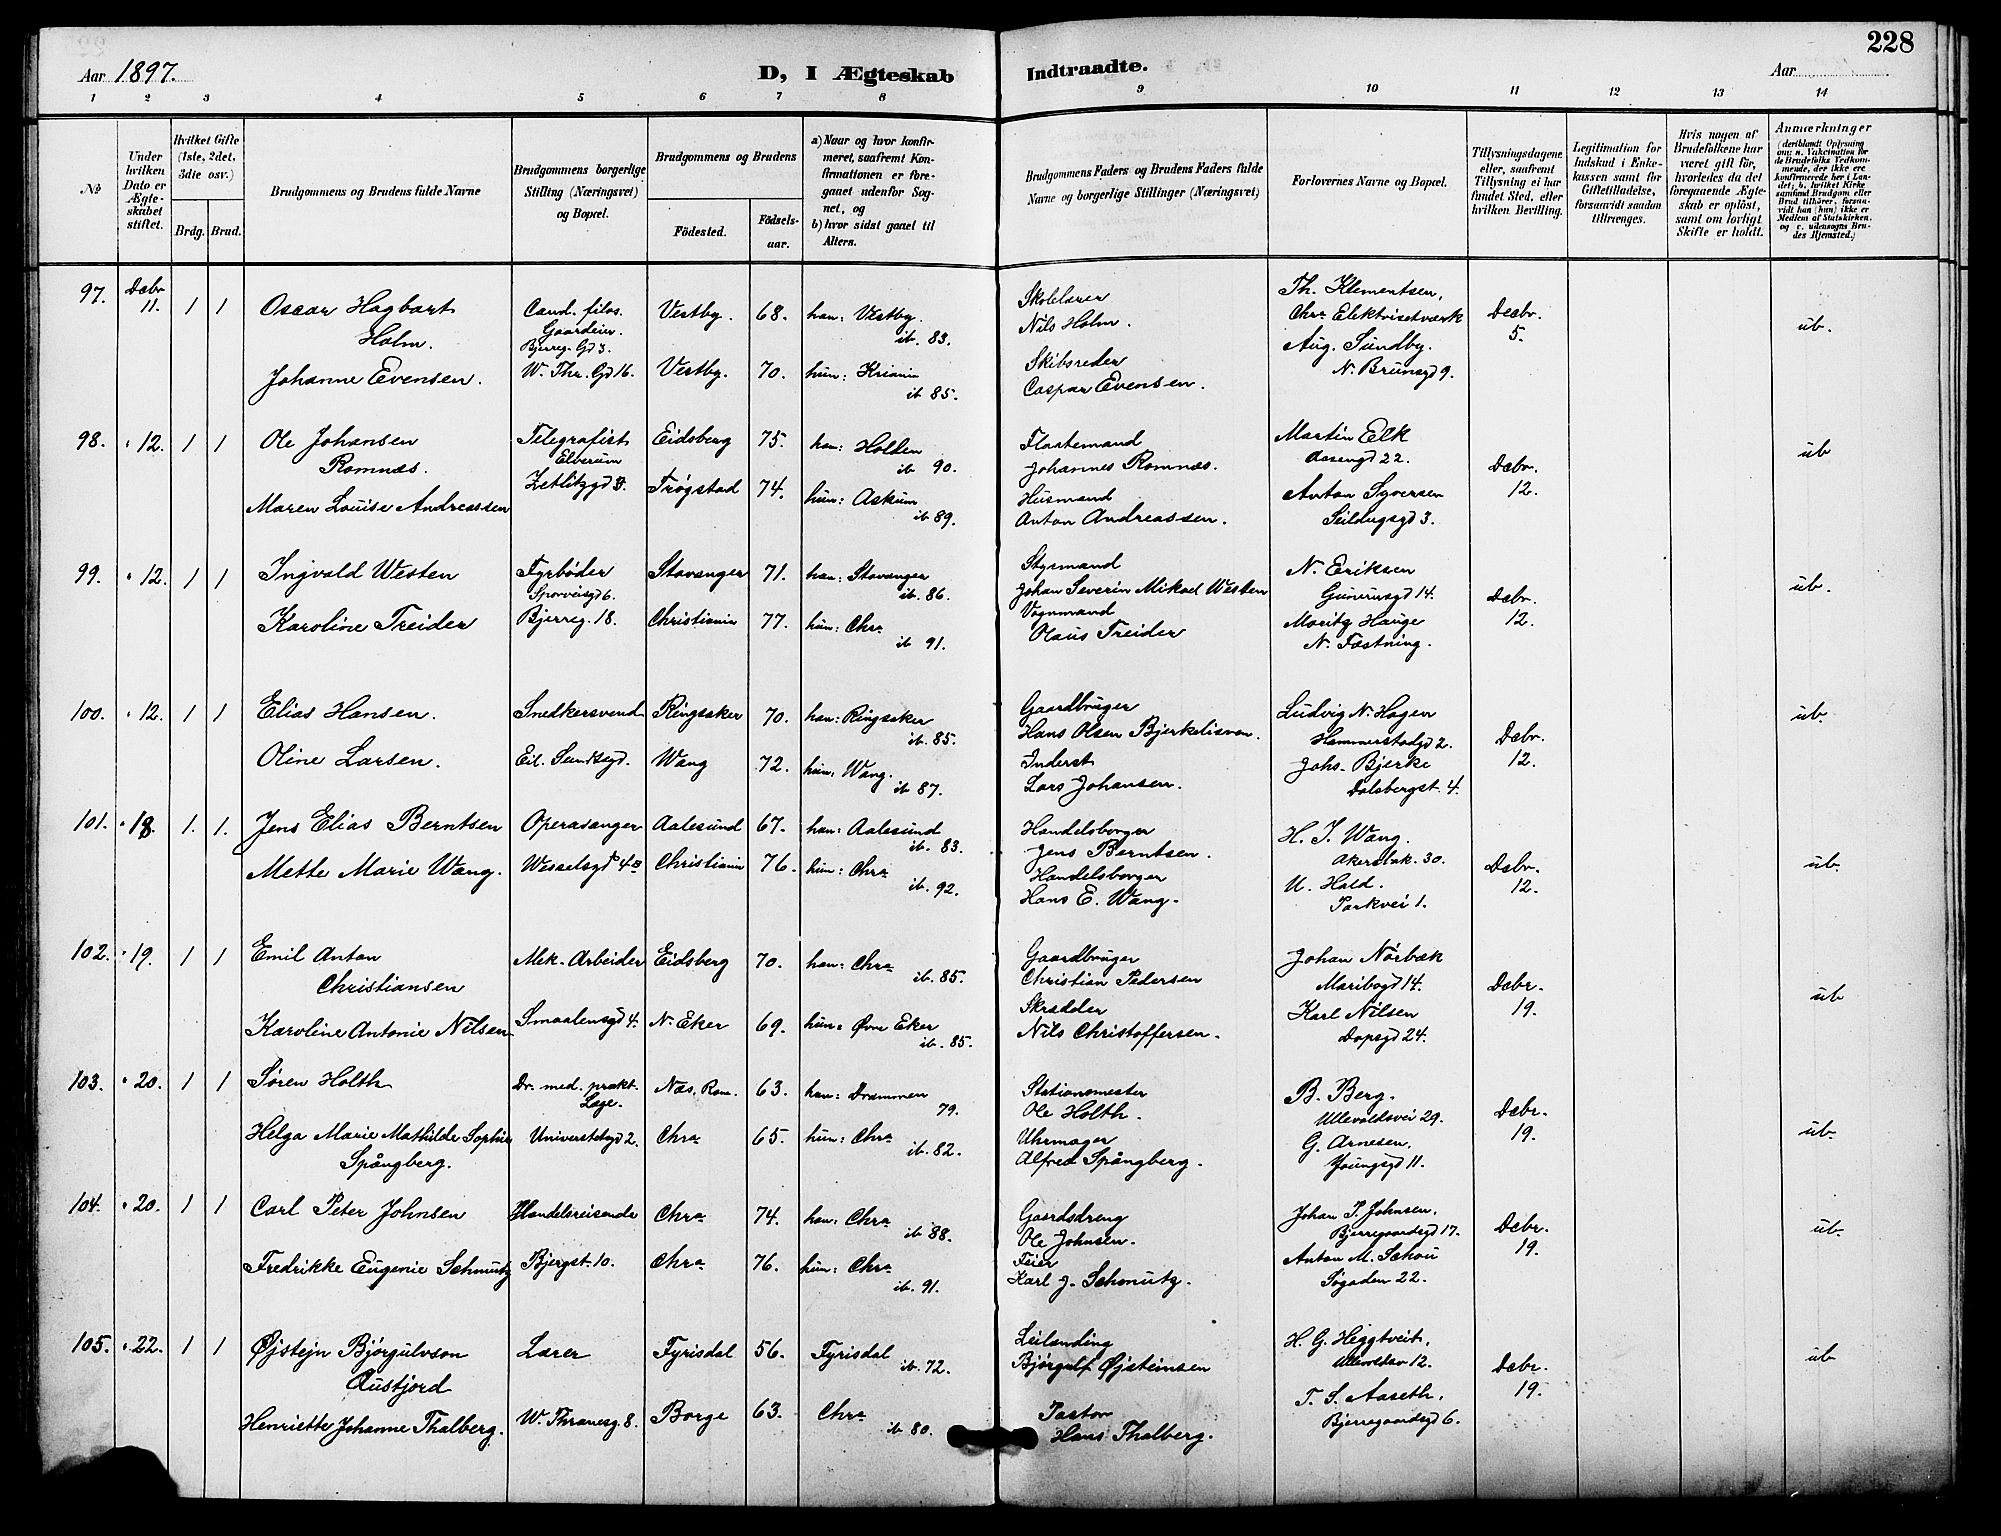 228
Aar 1897.
D, I Ægteskab Indtraadte.
Aar
1 2 3 4 5 6 7 8 9 10 11 12 13 14
No
Under hvilken Dato er Ægteskabet stiftet.
Hvilket Gifte (1ste, 2det, 3die osv.)
Brdg. Brud.
Brudgommens og Brudens fulde Navne
Brudgommens borgerlige Stilling (Næringsvei) og Bopæl.
Brudgommens og Brudens
Födested.
Födselsaar.
a) Naar og hvor konfirmeret, saafremt Konfirmationen er foregaaet udenfor Sognet, og
b) hvor sidst gaaet til Alters.
Brudgommens Faders og Brudens Faders fulde Navne og borgerlige Stillinger (Næringsvei)
Forlovernes Navne og Bopæl.
Tillysningsdagene eller, saafremt Tillysning ei har fundet Sted, efter hvilken Bevilling.
Legitimation for Indskud i Enkekassen samt for Giftetilladelse, forsaavidt saadan tiltrænges.
Hvis nogen af Brudefolkene har været gift för, hvorledes da det foregaaende Ægteskab er oplöst, samt om lovligt Skifte er holdt.
Anmærkninger
(deriblandt Oplysning om: a. Vakcination for de Brudefolks Vedkommende, der ikke ere konfirmerede her i Landet; b. hvilket Kirkesamfund Brudgom eller Brud tilhörer, forsaavidt han (hun) ikke er Medlem af Statskirken, og c. udensogns Brudes Hjemsted.)
97. Decbr 11. 1 1
Oscar Hagbart Holm.
Cand. filos. Gaardeier
Bjerreg. Gd 3.
Vestby. 68. han: Vestby. ib. 83.
Skolelærer
Nils Holm.
Th. Klementsen,
Chra Elektrisetværk
Decbr. 5.
ub.
Johanne Evensen.
W. Thr. Gd 16. Vestby. 70. hun: Kriania ib 85.
Skibsreder
Caspar Evensen.
Aug. Sundby.
N. Brunsgd 9.
98. " 12. 1 1
Ole Johansen Romnæs.
Telegrafist
Elverum
Eidsberg 75. han: Holden ib 90.
Johannes Romnæs.
Martin Elk
Aasengd 22.
Decbr. 12.
ub
Maren Louise Andreassen
Zetlitzgd 3. Trøgstad 74. hun: Askim ib 89.
Husmand
Anton Andreassen.
Anton Syversen
Seildugsgd 3.
99. " 12. 1 1
Ingvald Westen
Fyrbøder
Sporveisgd 6.
Stavanger 71. han: Stavanger ib. 86.
Styrmand
Johan Severin Mikael Westen
N. Eriksen
Decbr. 12.
ub.
Karoline Treider
Bjerreg. 18. Christiania 77. hun: Chra ib 91.
Vognmand
Olaus Treider
Moritz Hauge
N. Fæstning.
100. " 12. 1 1
Elias Hansen.
Snedkersvend Ringsaker 70. han: Ringsaker ib. 85.
Gaardbruger
Ludvig N. Hagen
Hammerstadgd 2.
Decbr. 12.
ub.
Oline Larsen.
Eil. Sundtsgd. Wang 72. hun: Wang. ib 87.
Inderst
Lars Johansen.
Johs. Bjerke
Dalsbergst. 4.
101. " 18. 1. 1.
Jens Elias Berntsen
Operasanger Aalesund 67. han: Aalesund ib. 83.
Handelsborger
Jens Berntsen.
H. J. Wang.
Akersbak. 30.
Decbr. 12.
ub
Mette Marie Wang.
Wesselsgd Christiania 76. hun: Chra ib 92.
Handelsborger
Hans E. Wang.
U. Hald.
Parkvei 1.
102. " 19. 1 1
Emil Anton Christiansen
Mek. Arbeider Eidsberg 70. han: Chra ib. 85.
Gaardbruger
Christian Pedersen
Johan Nörbæk
Maribogd 14.
Decbr. 19.
ub
Karoline Antonie Nilsen
Smaalensgd 4. N. Eker 69. hun: Øvre Eker ib. 85.
Skrædder
Nils Christoffersen.
Karl Nilsen
Dopsgd 24.
103. " 20. 1 1
Søren Holth
Dr. med. prakt. Læge.
Næs. Rom. 63. han: Drammen 79.
Stationsmester
Ole Holth.
B. Berg.
Ullevoldsvei 29.
Decbr. 19.
ub.
Helga Marie Mathilde Sophie Spångberg.
Universitetsgd 2. Chra 65. hun: Chra ib. 82.
Uhrmager
Alfred Spångberg.
G. Arnesen.
Youngsgd 11.
104. " 20. 1 1
Carl Peter Johnsen
Handelsreisende Chra 74. han: Chra ib 88.
Gaardsdreng
Ole Johnsen.
Johan P. Johnsen.
Bjerregaardsgd 17.
Decbr. 19.
ub.
Fredrikke Eugenie Schmutz
Bjergst. 10. Chra 76. hun: Chra ib 91.
Feier
Karl J. Schmutz.
Anton M. Schou
Søgaden 22.
105. " 22. 1 1
Øjstejn Bjørgulvson Austjord
Lærer Fyrisdal 56. Fyrisdal ib 72.
Leilænding
Bjørgulf Øjsteinsen
H. G. Heggtveit.
Decbr. 19.
ub
Henriette Johanne Thalberg.
W. Thranesg. 8. Borge 63. Chra ib 80.
Pastor
Hans Thalberg.
T. S. Aaseth.
Bjerregaardsgd 6.